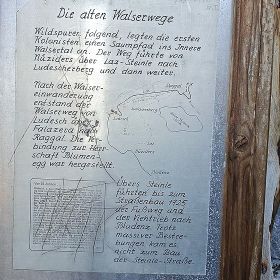 Die alten Walserwege
Wildspuren folgend, legten die ersten
Kolonisten einen Saumpfad ins Innere
Walsertal an. Der Weg führte von
Nüziders über Laz-Steinle nach
Ludescherberg und dann weiter.
Nach der Walser-
einwanderung
entstand der
Walserweg von
Ludesch
nach
Raggal. Die
bindung zur Herr-
schaft Blumen-
egg war hergestellt.
Raggal
Ludescherberg
Ludesch
Laz
Nüziders
Bludenz
Übers Steinle
führten bis zum
Straßenbau 1925
der Fußweg und
der Viehtrieb nach
Bludenz. Trotz
massiver Bestre-
bungen kam es
nicht zum Bau
der Steinle-Straße.